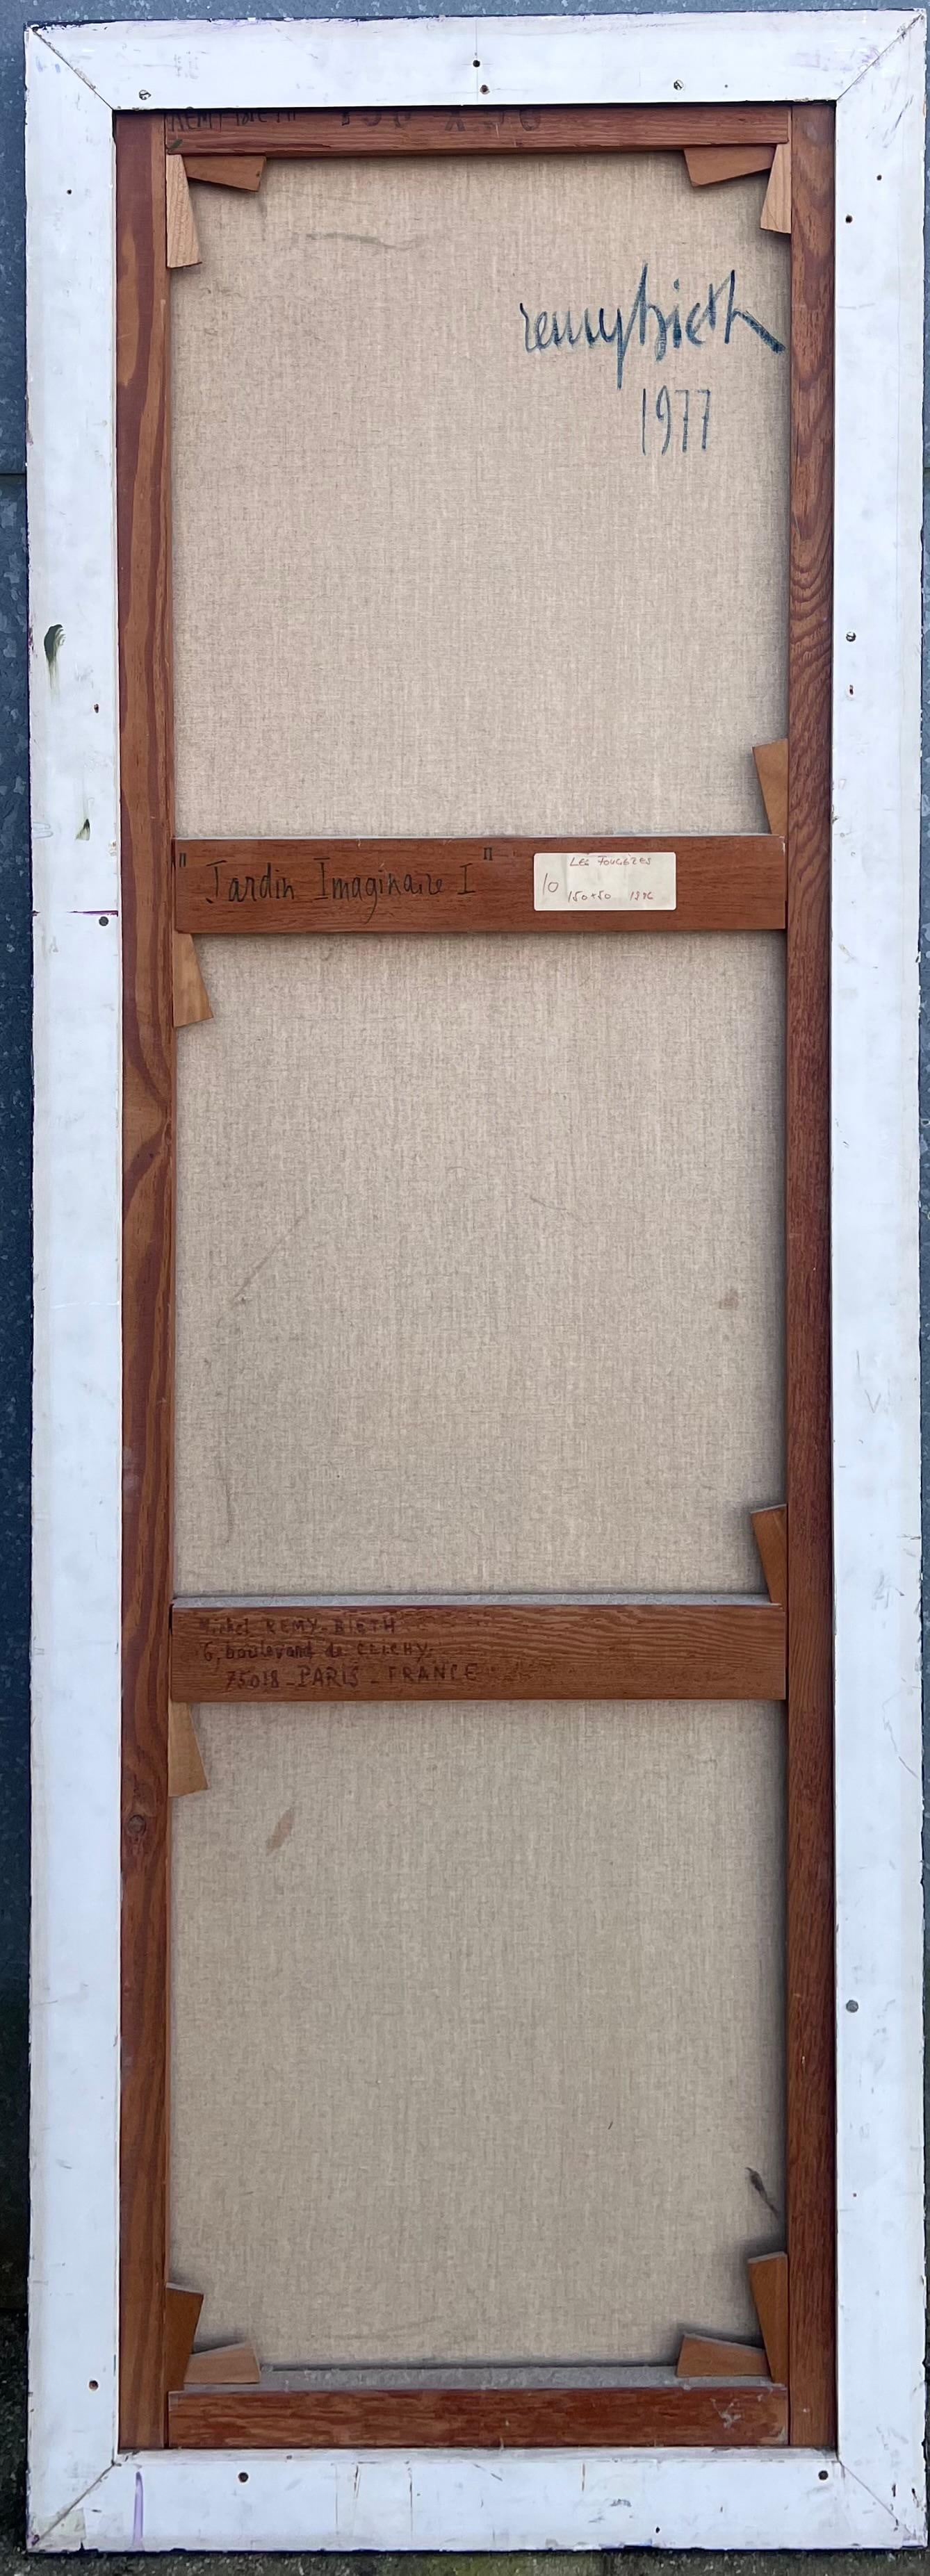 150 X 50
remybieth
1977
" Jardin Imaginaire I "
LES FOUGERES
10
150x50
Michel REMY-BIETH
6, boulevard de CLICHY.
75018 - PARIS - FRANCE